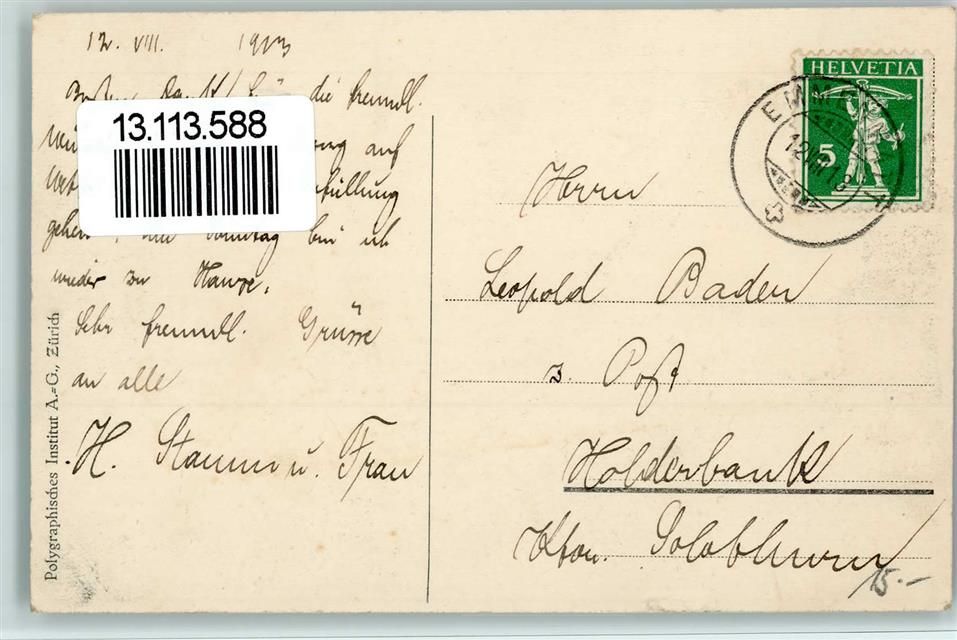 12. VIII. 1913
die freundl.
auf
gehen, am Sonntag bin ich
wieder zu Hause.
Sehr freundl. Grüsse
an alle
H. Stamm u. Frau
13.113.588
Polygraphisches Institut A.=G., Zürich
HELVETIA
5
Herrn
Leopold Baden
z. Post
Holderbank
Kton. Solothurn
15.-